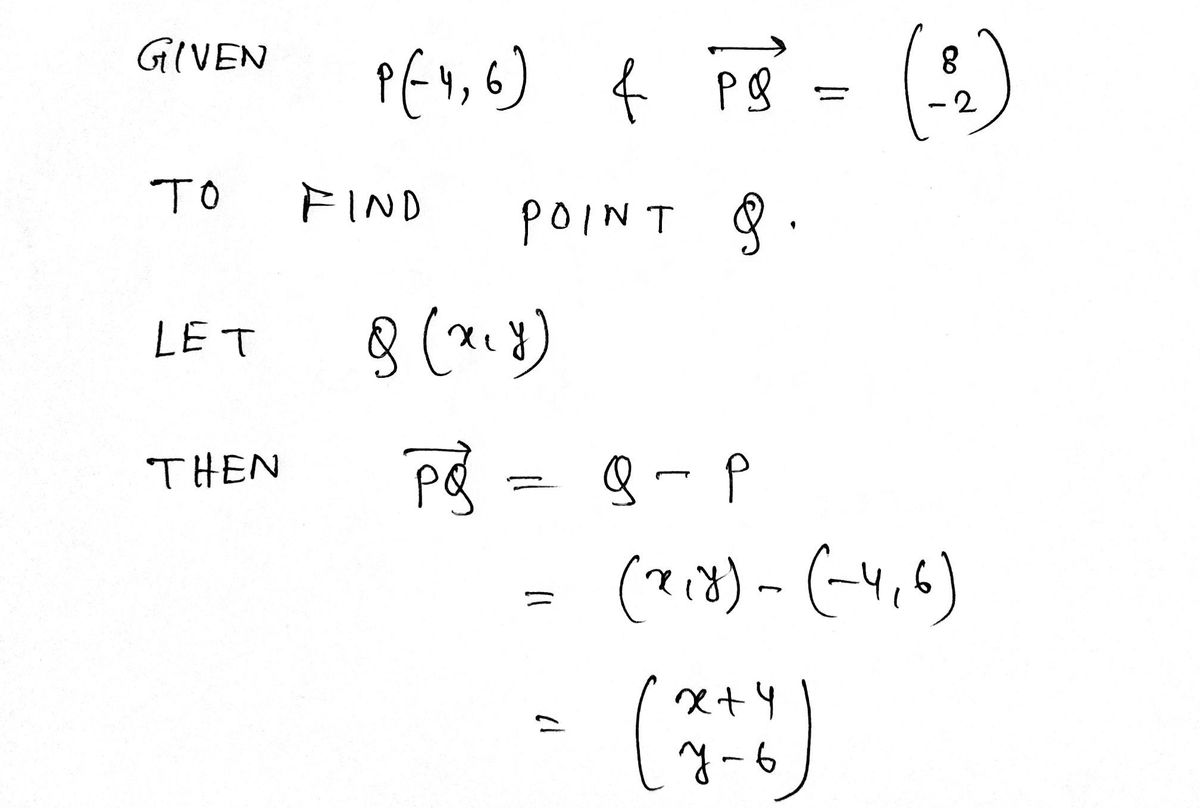 GIVEN P(-4, 6) & \overrightarrow{PQ} = \begin{pmatrix} 8 \\ -2 \end{pmatrix}
TO FIND POINT Q.
LET Q (x, y)
THEN \overrightarrow{PQ} = Q - P
= (x, y) - (-4, 6)
= \begin{pmatrix} x+4 \\ y-6 \end{pmatrix}